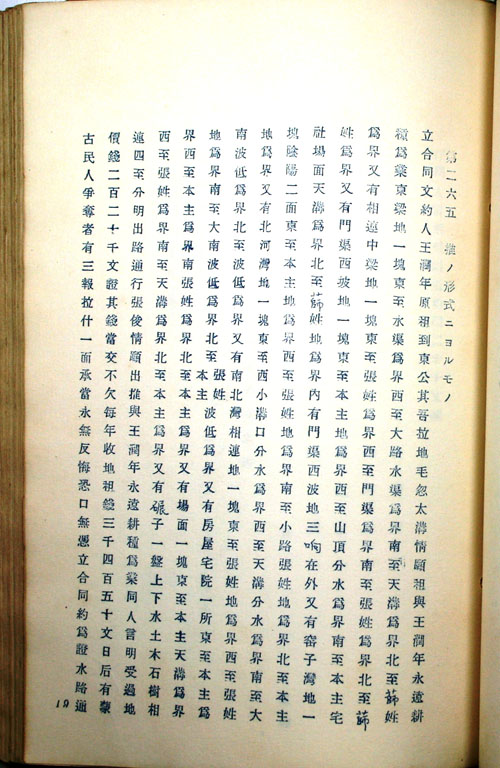 第二六五 推ノ形式ニヨルモノ
立合同文約人王濶年原祖到東公其菩拉地毛忽太溝情願祖與王濶年永遠耕
種爲業東梁地一塊東至水渠爲界西至大路水渠爲界南至天溝爲界北至薛姓
爲界又有相連中梁地一塊東至張姓爲界西至門渠爲界南至張姓爲界北至薛
姓爲界又有門渠西坡地一塊東至本主地爲界西至山頂分水爲界南至本主宅
社場面天溝爲界北至薛姓地爲界內有門渠西波地三垧在外又有窑子灣地一
塊陰陽二面東至本主地爲界西至張姓地爲界南至小路張姓地爲界北至本主
地爲界又有北河灣地一塊東至西小溝口分水爲界西至天溝分水爲界南至大
南波低爲界北至波低爲界又有南北灣相連地一塊東至張姓地爲界西至張姓
地爲界南至大南波低爲界北至張姓本主波低爲界又有房屋宅院一所東至本主爲
界西至本主爲界南張姓爲界北至本主爲界又有場面一塊東至本主天溝爲界
西至張姓爲界南至天溝爲界北至本主爲界又有碾子一盤上下水土木石樹相
連四至分明出路通行張俊情願出推與王濶年永遠耕種爲業同人言明受過地
價錢二百二十千文證其錢當交不欠每年收地祖錢三千四百五十文日后有蒙
古民人爭奪者有三報拉什一面承當永無反悔恐口無憑立合同約爲證水路通
19